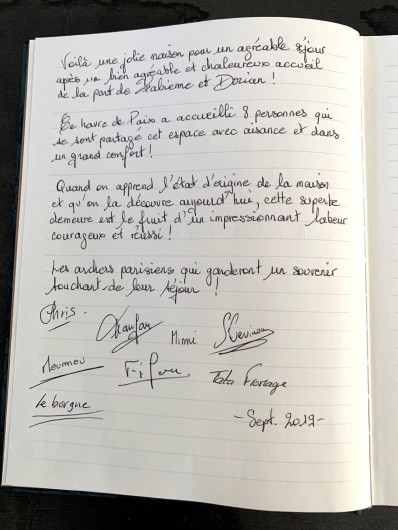 Voilà une jolie maison pour un agréable séjour
après un bien agréable et chaleureux accueil
de la part de Fabienne et Dorian !
Ce havre de Paix a accueilli 8 personnes qui
se sont partagé cet espace avec aisance et dans
un grand confort !
Quand on apprend l'état d'origine de la maison
et qu'on la découvre aujourd'hui, cette superbe
demeure est le fruit d'un impressionnant labeur
courageux et réussi !
Les archers parisiens qui garderont un souvenir
touchant de leur séjour !
Chris.
Mimi
Meumeu
Tata Fromage
Le borgne
- Sept. 2019 -